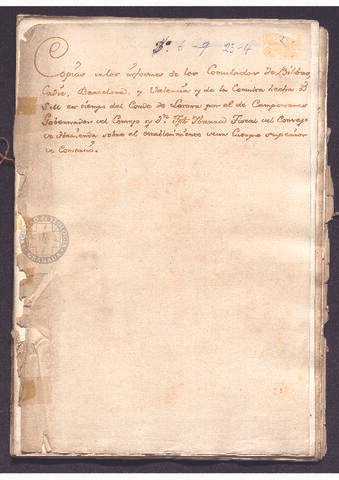 3ª 6 - 9 23-4
Copias de los informes de los Consulados de Bilbao,
Cadiz, Barcelona, y Valencia y de la Consulta hecha á
S.M. en tiempo del Conde de Lerena por el de Campomanes
Gobernador del Consejo y Dn. Fiscal del Consejo
de Hacienda sobre el establecimiento de un Cuerpo superior
de Comercio.